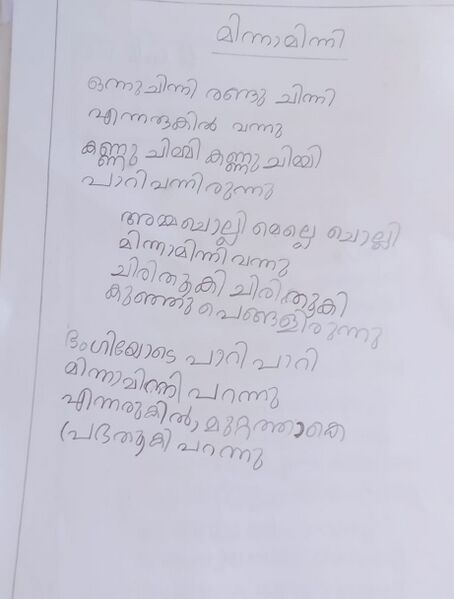 മിന്നാമിന്നി
ഒന്നുചിന്നി രണ്ടു ചിന്നി
എന്നരുകിൽ വന്നു
കണ്ണു ചിമ്മി കണ്ണുചിമ്മി
പാറിവന്നിരുന്നു
അമ്മചൊല്ലി മെല്ലെ ചൊല്ലി
മിന്നാമിന്നിവന്നു
ചിരിതൂകി ചിരിതൂകി
കുഞ്ഞു പെങ്ങളിരുന്നു
ഭംഗിയോടെ പാറി പാറി
മിന്നാമിന്നി പറന്നു
എന്നരുകിൽ, മുറ്റത്താകെ
പ്രഭതൂകി പറന്നു